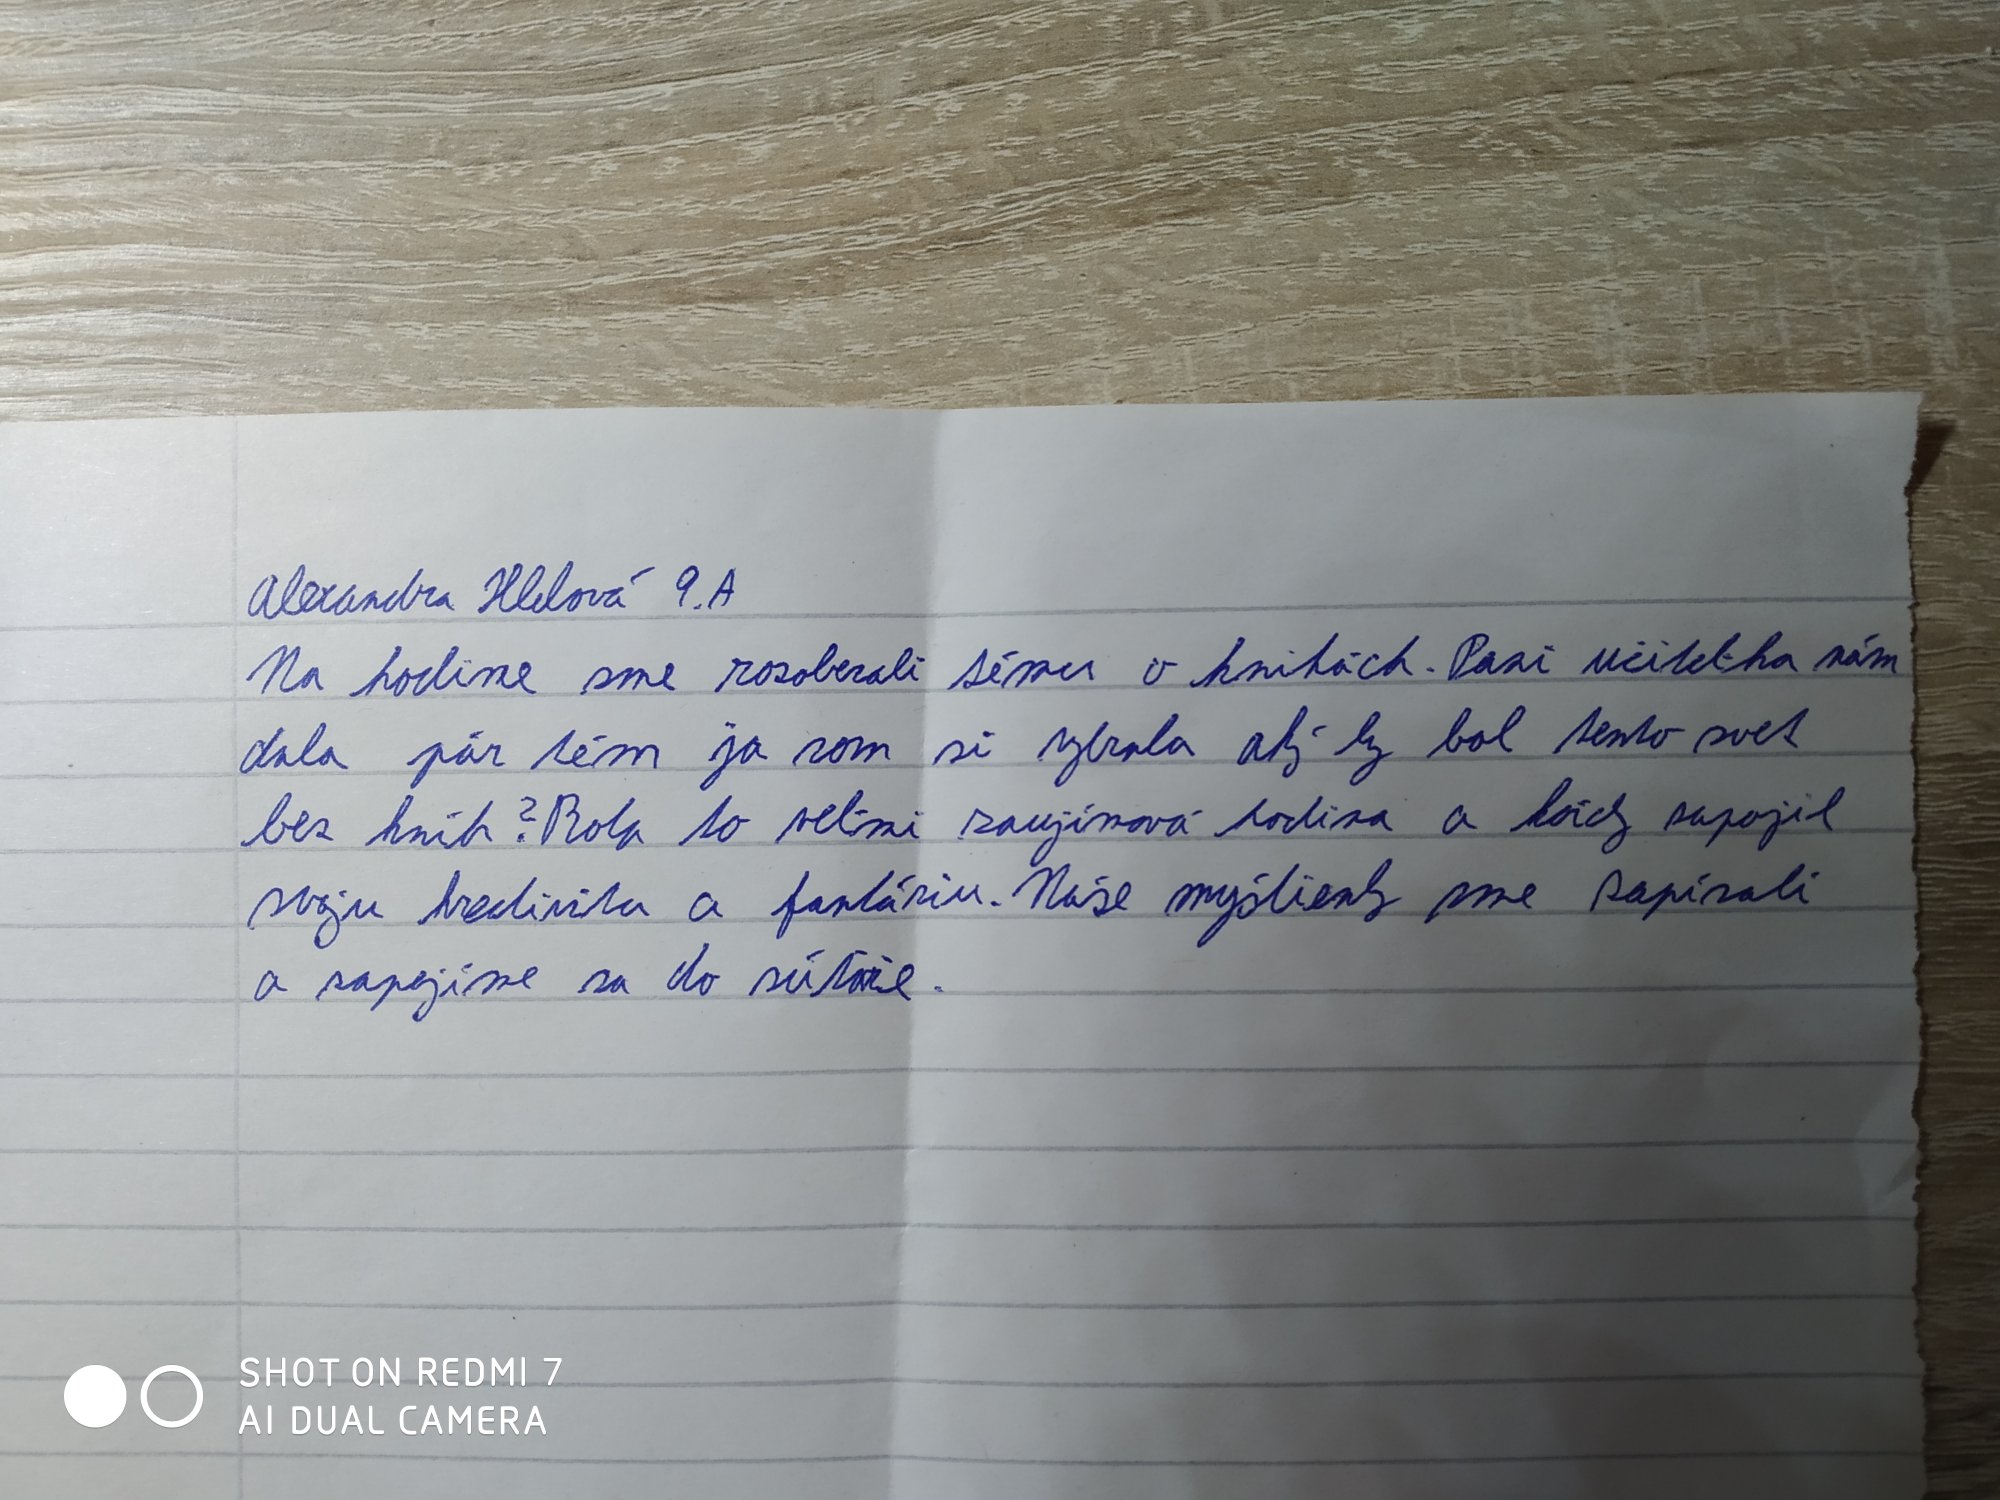 Alexandra Hlelová 9.A
Na hodine sme rozoberali tému o knihách. Pani učiteľka nám
dala pár tém ja som si vybrala aký by bol tento svet
bez kníh? Bola to veľmi zaujímavá hodina a každý zapojil
svoju kreativitu a fantáziu. Naše myšlienky sme zapísali
a zapojíme sa do súťaže.
SHOT ON REDMI 7
AI DUAL CAMERA